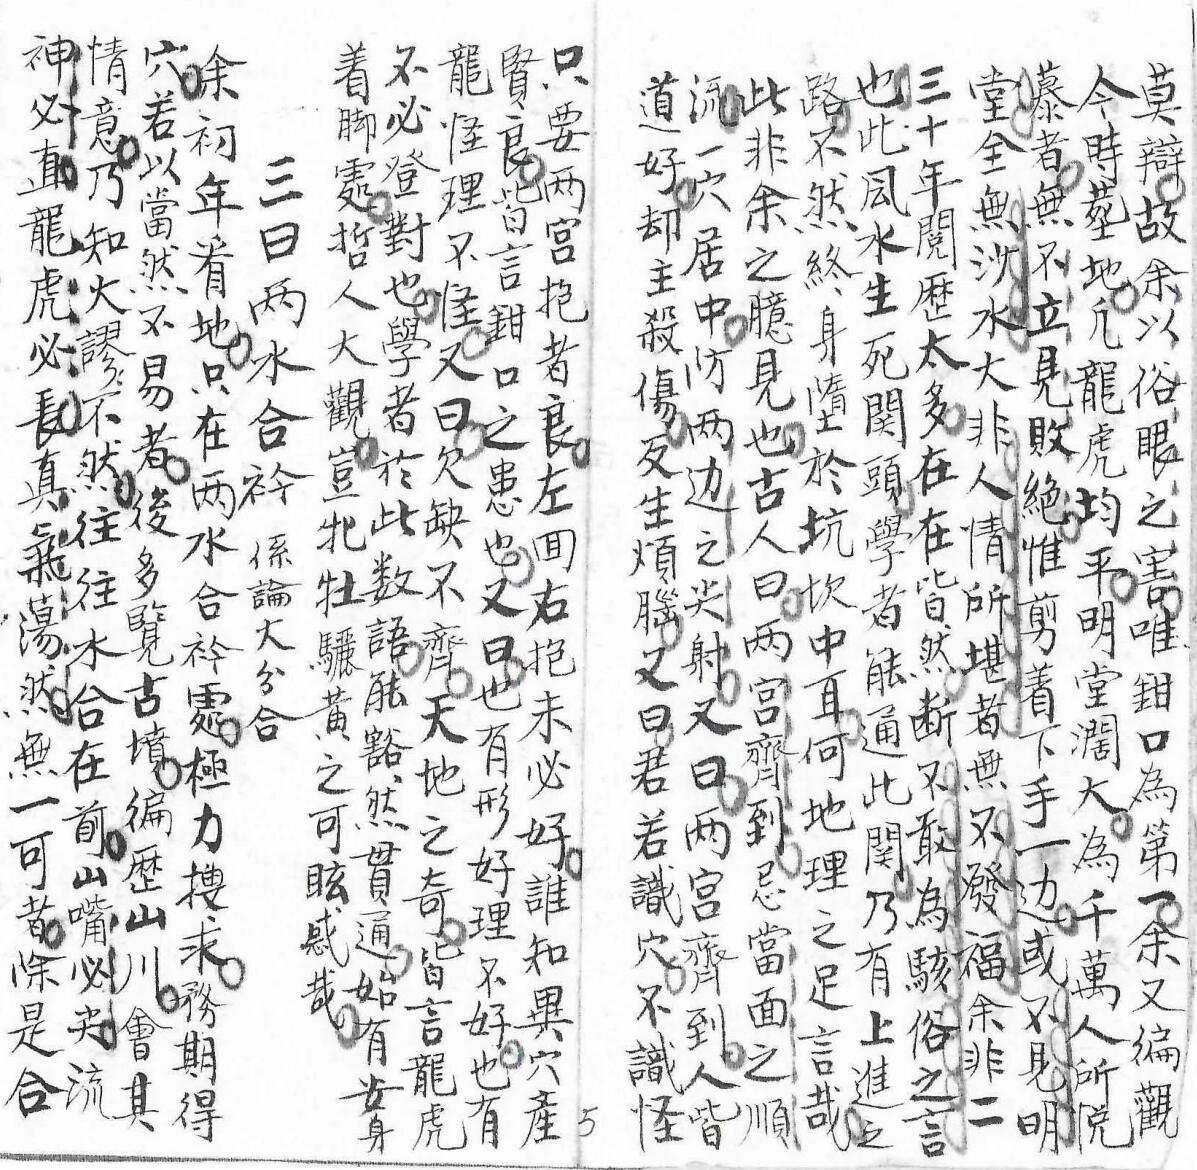 莫辯故余以俗眼之害唯鉗口為第一余又徧觀
今時塟地凢龍虎均平明堂濶大為千萬人所悦
慕者無不立見敗絕惟剪着下手一边或不見明
堂全無沙水大非人情所堪者無不發福余非二
三十年閲歷太多在在皆然断不敢為駭俗之言
也此风水生死関頭學者能通此関乃有上進之
路不然終身墮於坑坎中耳何地理之足言哉
此非余之臆見也古人曰两宮齊到忌當面之順
流一穴居中防两边之尖射又曰两宮齊到人皆
道好却主殺傷反生煩腦又曰君若識穴不識怪
只要两宮抱者良左囬右抱未必好誰知異穴產
賢良皆言鉗口之患也又曰也有形好理不好也有
龍怪理不怪又曰欠缺不齊天地之奇皆言龍虎
不必登對也學者於此数語能豁然貫通始有安身
着脚䖏哲人大觀豈牝牡驪黃之可眩惑哉
三曰两水合衿 係論大分合
余初年看地只在两水合衿䖏極力摟求務期得
穴若以當然不易者後多覽古墳徧歷山川會其
情意乃知大謬不然往往水合在前山嘴必尖流
神必直龍虎必長真氣蕩然無一可者除是合
5